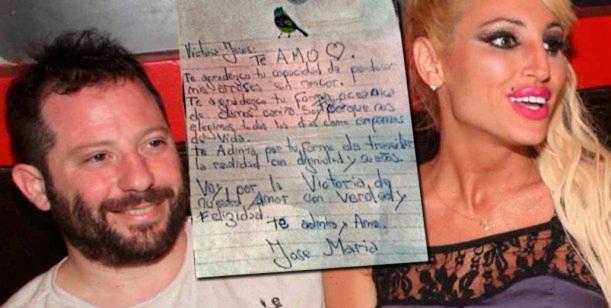 Victoria Jesus:
TE AMO
Te agradezco tu capacidad de perdonar
mis errores sin rencor.
Te agradezco tu forma
de darnos cariño. porque nos
elegimos todos los dias como compañeros
de Vida.
te Admiro por tu forma de transitar
la realidad con dignidad y sueños.
Voy por la Victoria, de
nuestro Amor con Verdad y
Felicidad.
te admiro y Amo.
Jose Maria